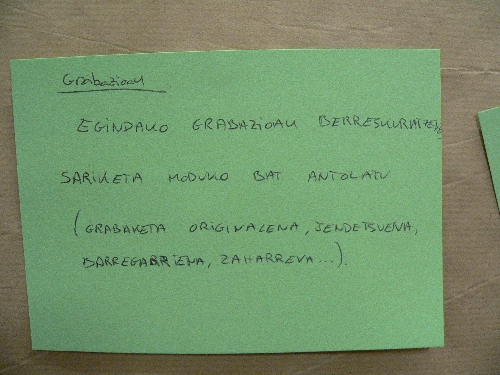 Grabazioak
EGINDAKO GRABAZIOAK BERRESKURATZEKO
SARIKETA MODUKO BAT ANTOLATU
(GRABAKETA ORIGINALENA, JENDETSUENA,
BARREGARRIENA, ZAHARRENA...).